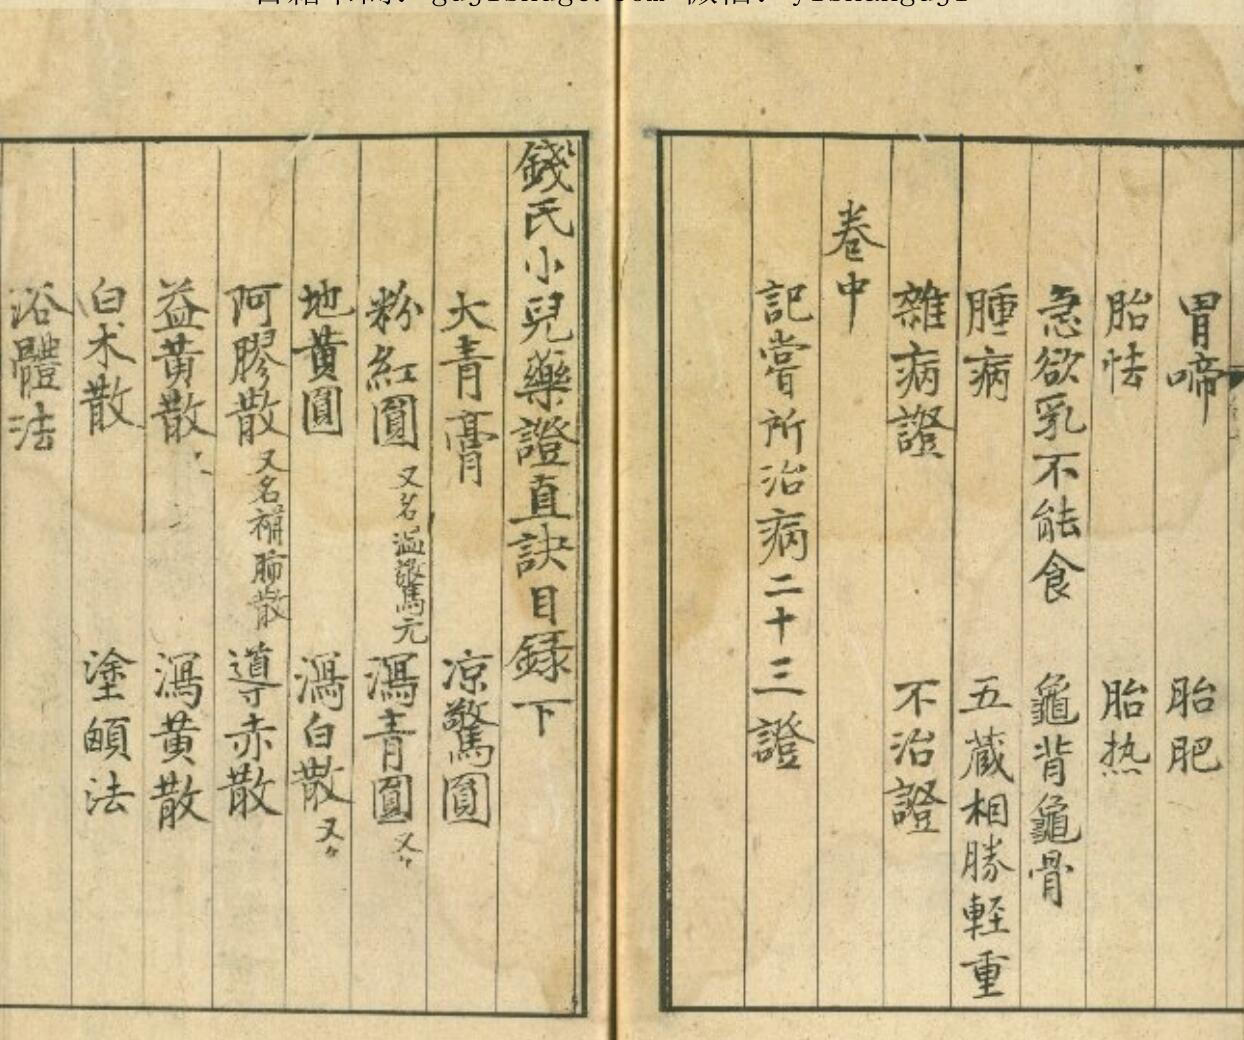 胃啼 胎肥
胎怯 胎热
急欲乳不能食 龜背龜骨
腫病 五蔵相勝軽重
雜病證 不治證
卷中
記嘗所治病二十三證
錢氏小兒藥證直訣目録下
大青膏 凉驚圓
粉紅圓 又名温驚元 瀉青圓 又
地黃圓 瀉白散 又
阿膠散 又名補肺散 導赤散
益黄散 瀉黄散
白术散 塗顖法
浴體法